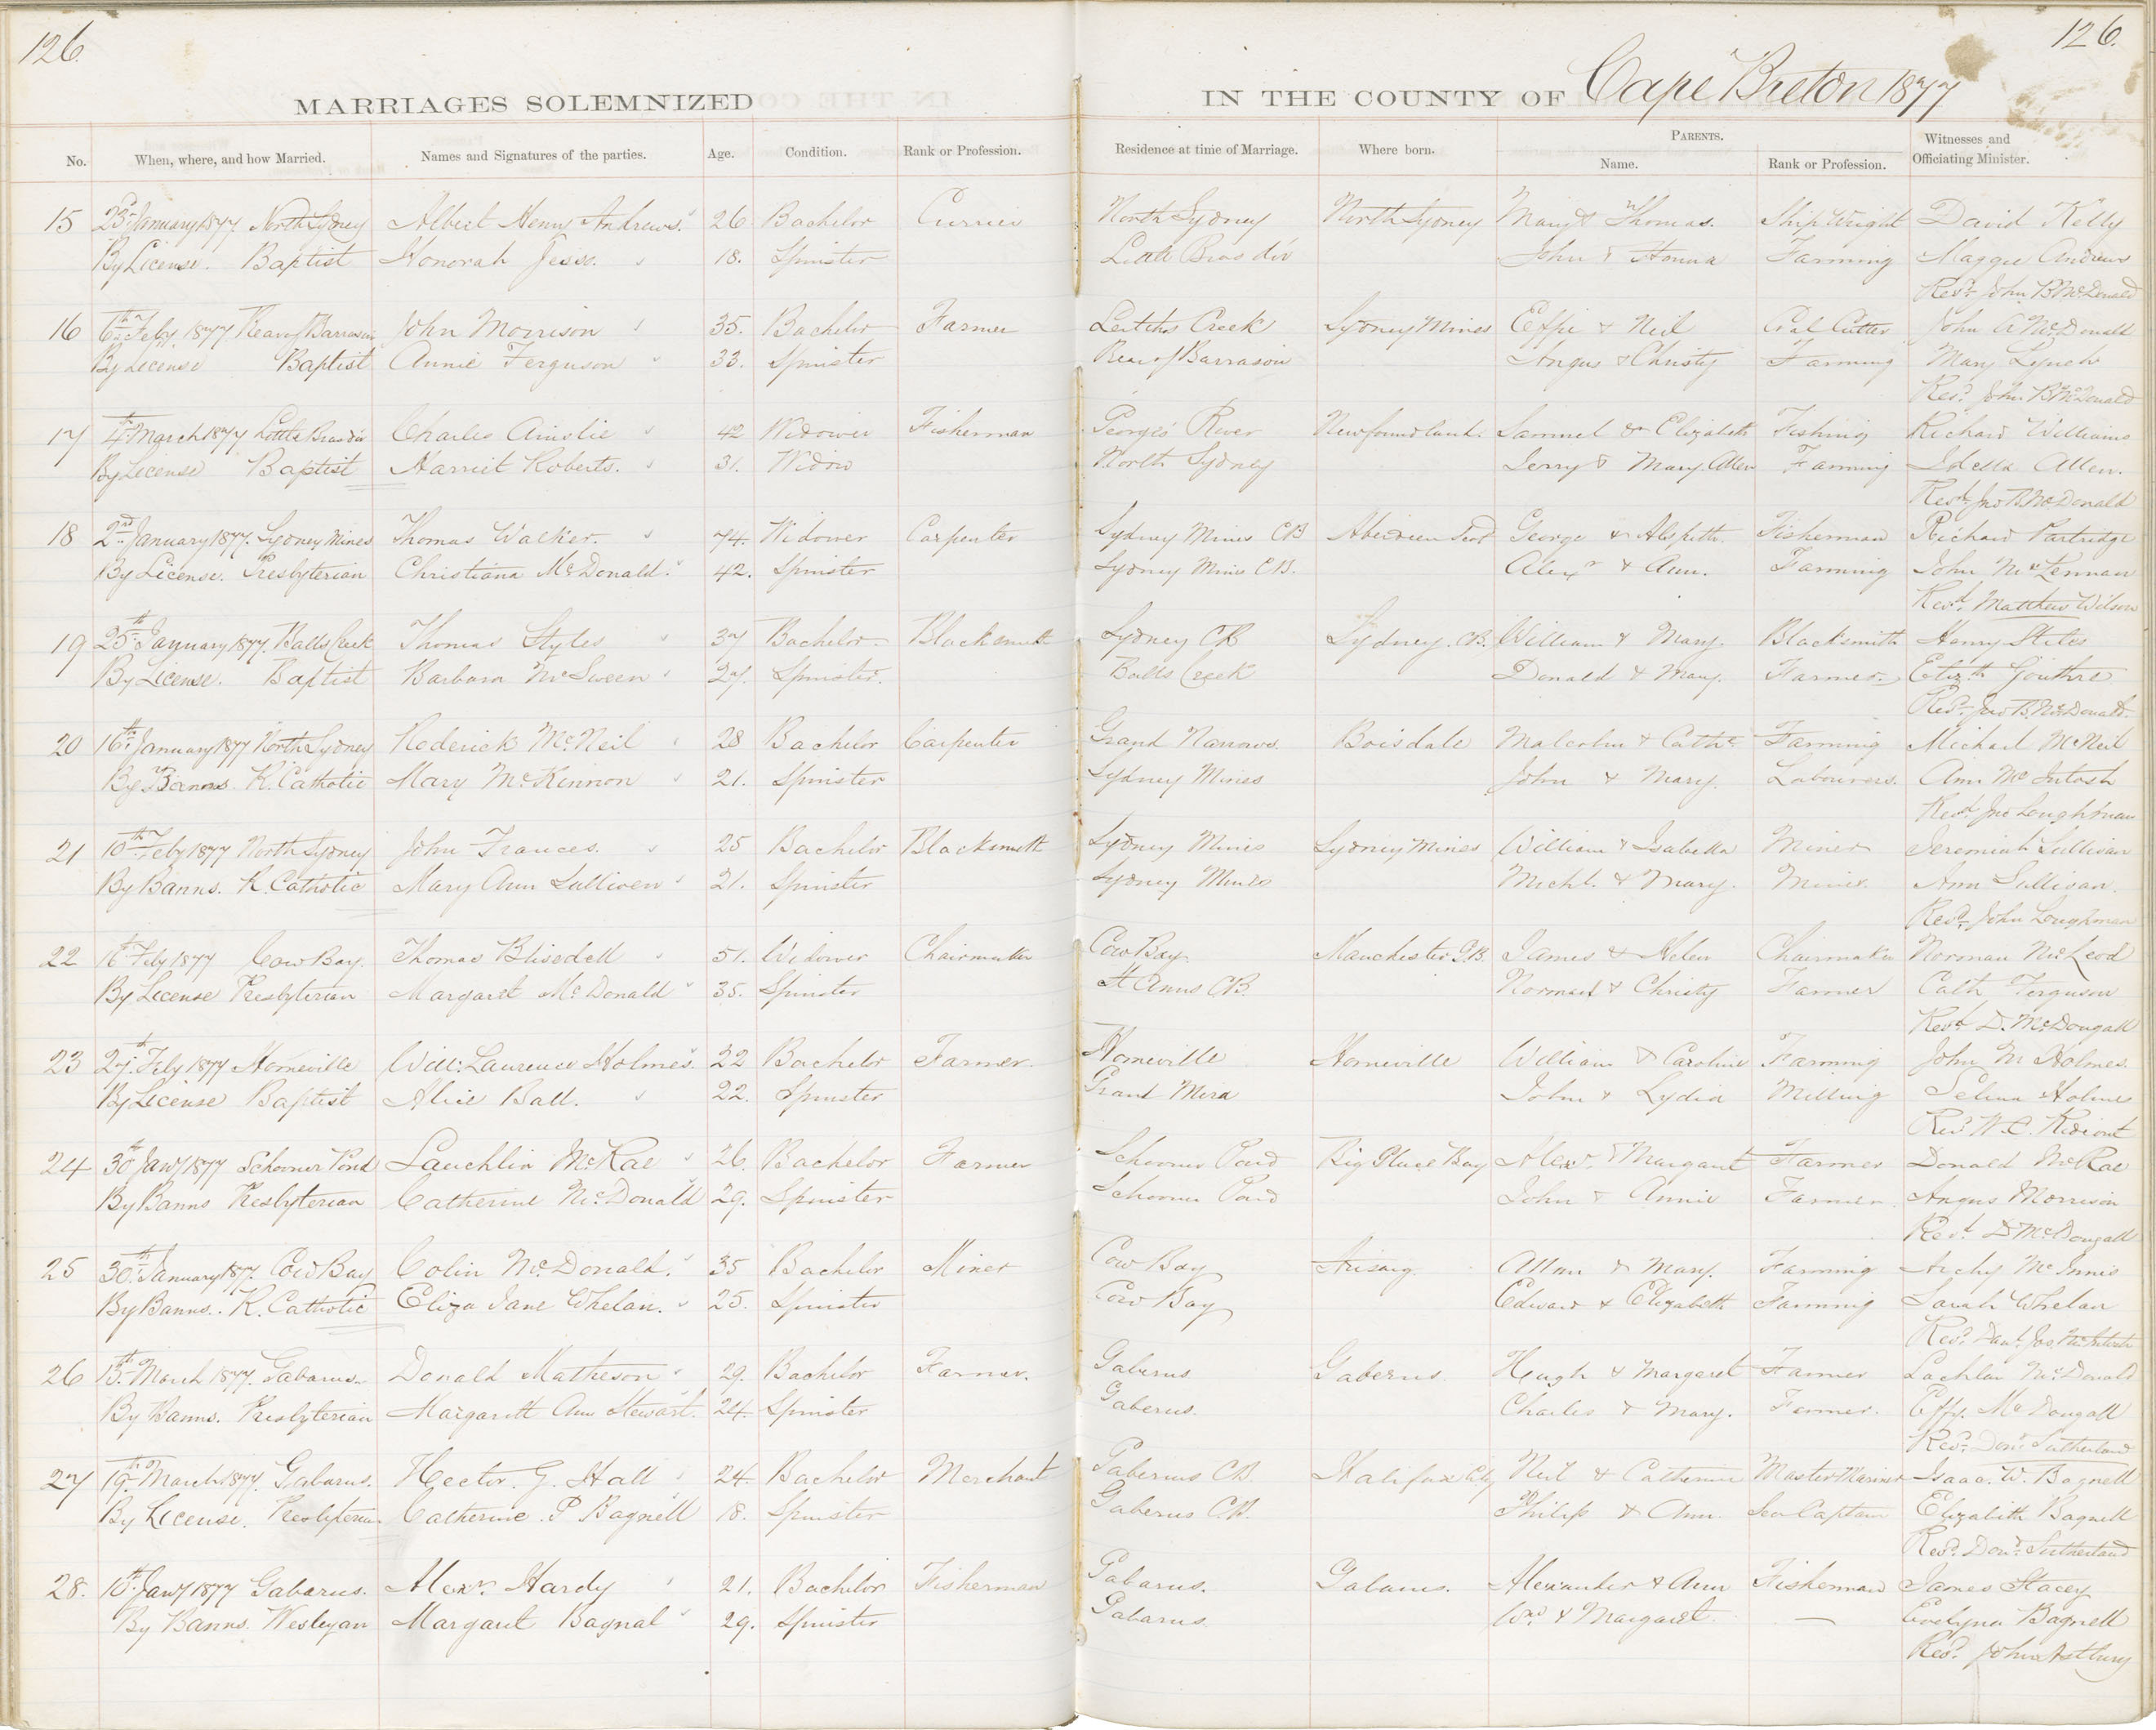 126.
126.
MARRIAGES SOLEMNIZED
IN THE COUNTY OF Cape Breton 1877
No. When, where, and how Married. Names and Signatures of the parties. Age. Condition. Rank or Profession. Residence at time of Marriage. Where born. PARENTS. Name. Rank or Profession. Witnesses and Officiating Minister.
15 23rd January 1877 North Sydney Albert Henry Andrews. 26 Bachelor Currier North Sydney North Sydney Mary & Thomas. Ship Wright David Kelly
By License. Baptist Honorah Jesso. 18. Spinster Little Bras d'or John & Honna Farming Maggie Andrews
Revd. John B McDonald
16 6th Feby. 1877 Rear of Barrasois John Morrison 35. Bachelor Farmer Leitchs Creek Sydney Mines Effie & Neil Coal Cutter John A McDonald
By License Baptist Annie Ferguson 33. Spinster Rear of Barrasois Angus & Christy Farming Mary Lynch
Revd. John B McDonald
17 4th March 1877 Little Bras d'or Charles Ainslie 42 Widower Fisherman Georges River Newfoundland. Samuel & Elizabeth Fishing Richard Williams
By License Baptist Harriet Roberts. 31. Widow North Sydney Jerry & Mary Allen Farming Idella Allen.
Revd. Jno B McDonald
18 2nd January 1877. Sydney Mines Thomas Walker. 74. Widower Carpenter Sydney Mines CB Aberdeen Scot George & Alspeth. Fisherman Richard Partridge
By License. Presbyterian Christiana McDonald. 42. Spinster Sydney Mines CB. Alexr & Ann. Farming John McLennan
Revd. Matthew Wilson
19 25th January 1877. Balls Creek Thomas Styles 37 Bachelor Blacksmith Sydney CB Sydney. CB. William & Mary. Blacksmith Henry Stiles
By License. Baptist Barbara McSween 27. Spinster. Balls Creek Donald & Mary. Farmer. Elizth Gouthre
Revd. Jno B. McDonald.
20 16th January 1877 North Sydney Roderick McNeil 28 Bachelor Carpenter Grand Narrows. Boisdale Malcolm & Cathe Farming Michael McNeil
By Banns R. Catholic Mary McKinnon 21. Spinster Sydney Mines John & Mary. Labourers. Ann McIntosh
Revd. Jno Loughnan
21 10th Feby 1877 North Sydney John Frances. 25 Bachelor Blacksmith Sydney Mines Sydney Mines William & Isabella Miner Jeremiah Sullivan
By Banns. R. Catholic Mary Ann Sulliven 21. Spinster Sydney Mines Michl. & Mary. Miner. Ann Sullivan.
Revd. John Loughnan
22 16th Feby 1877 Cow Bay. Thomas Blisedell 51. Widower Chairmaker Cow Bay. Manchester G.B. James & Helen Chairmaker Norman McLeod
By License Presbyterian Margaret McDonald 35. Spinster St Anns CB. Norman & Christy Farmer Cath Ferguson
Revd. D. McDougall
23 27th Feby 1877 Homeville Will: Laurence Holmes. 22 Bachelor Farmer. Homeville Homeville William & Caroline Farming John M Holmes.
By License Baptist Alice Ball. 22. Spinster Grand Mira John & Lydia Milling Selina Holmes
Revd W. C.
24 30th Jany 1877 Schooner Pond Lauchlin McRae 26. Bachelor Farmer Schooner Pond Big Glace Bay Alexr. & Margaret Farmer Donald McRae
By Banns Presbyterian Catherine McDonald 29. Spinster Schooner Pond John & Annie Farmer. Angus Morrison
Revd. D McDougall
25 30th January 1877. Cow Bay Colin McDonald. 35 Bachelor Miner Cow Bay Arisaig. Allan & Mary. Farming Archy McInnis
By Banns. R. Catholic Eliza Jane Whelan. 25. Spinster Cow Bay Edward & Elizabeth Farming Sarah Whelan
Revd. Danl. Jos. McIntosh
26 13th March 1877. Gabarus. Donald Matheson 29. Bachelor Farmer. Gaberus. Gaberus. Hugh & Margaret Farmer Lachlan McDonald
By Banns. Presbyterian Margarett Ann Stewart. 24. Spinster Gaberus. Charles & Mary. Farmer. Effy. McDougall
Revd. Dond. Sutherland
27 19th March 1877. Gabarus. Hector. G. Hall 24. Bachelor Merchant Gaberus CB. Halifax City Neil & Catherine Master Mariner Isaac. W. Bagnell
By License. Presbyterian. Catherine. P Bagnell 18. Spinster Gaberus CB. Philip & Ann. Sea Captain Elizabeth Bagnell
Revd. Dond. Sutherland
28. 10th Jany 1877 Gabarus. Alexr. Hardy 21. Bachelor Fisherman Gabarus. Gabarus. Alexander & Ann Fisherman James Stacey
By Banns. Wesleyan Margaret Bagnal 29. Spinster Gabarus. Wm & Margaret. — Evelyna Bagnell
Revd. John Astbury